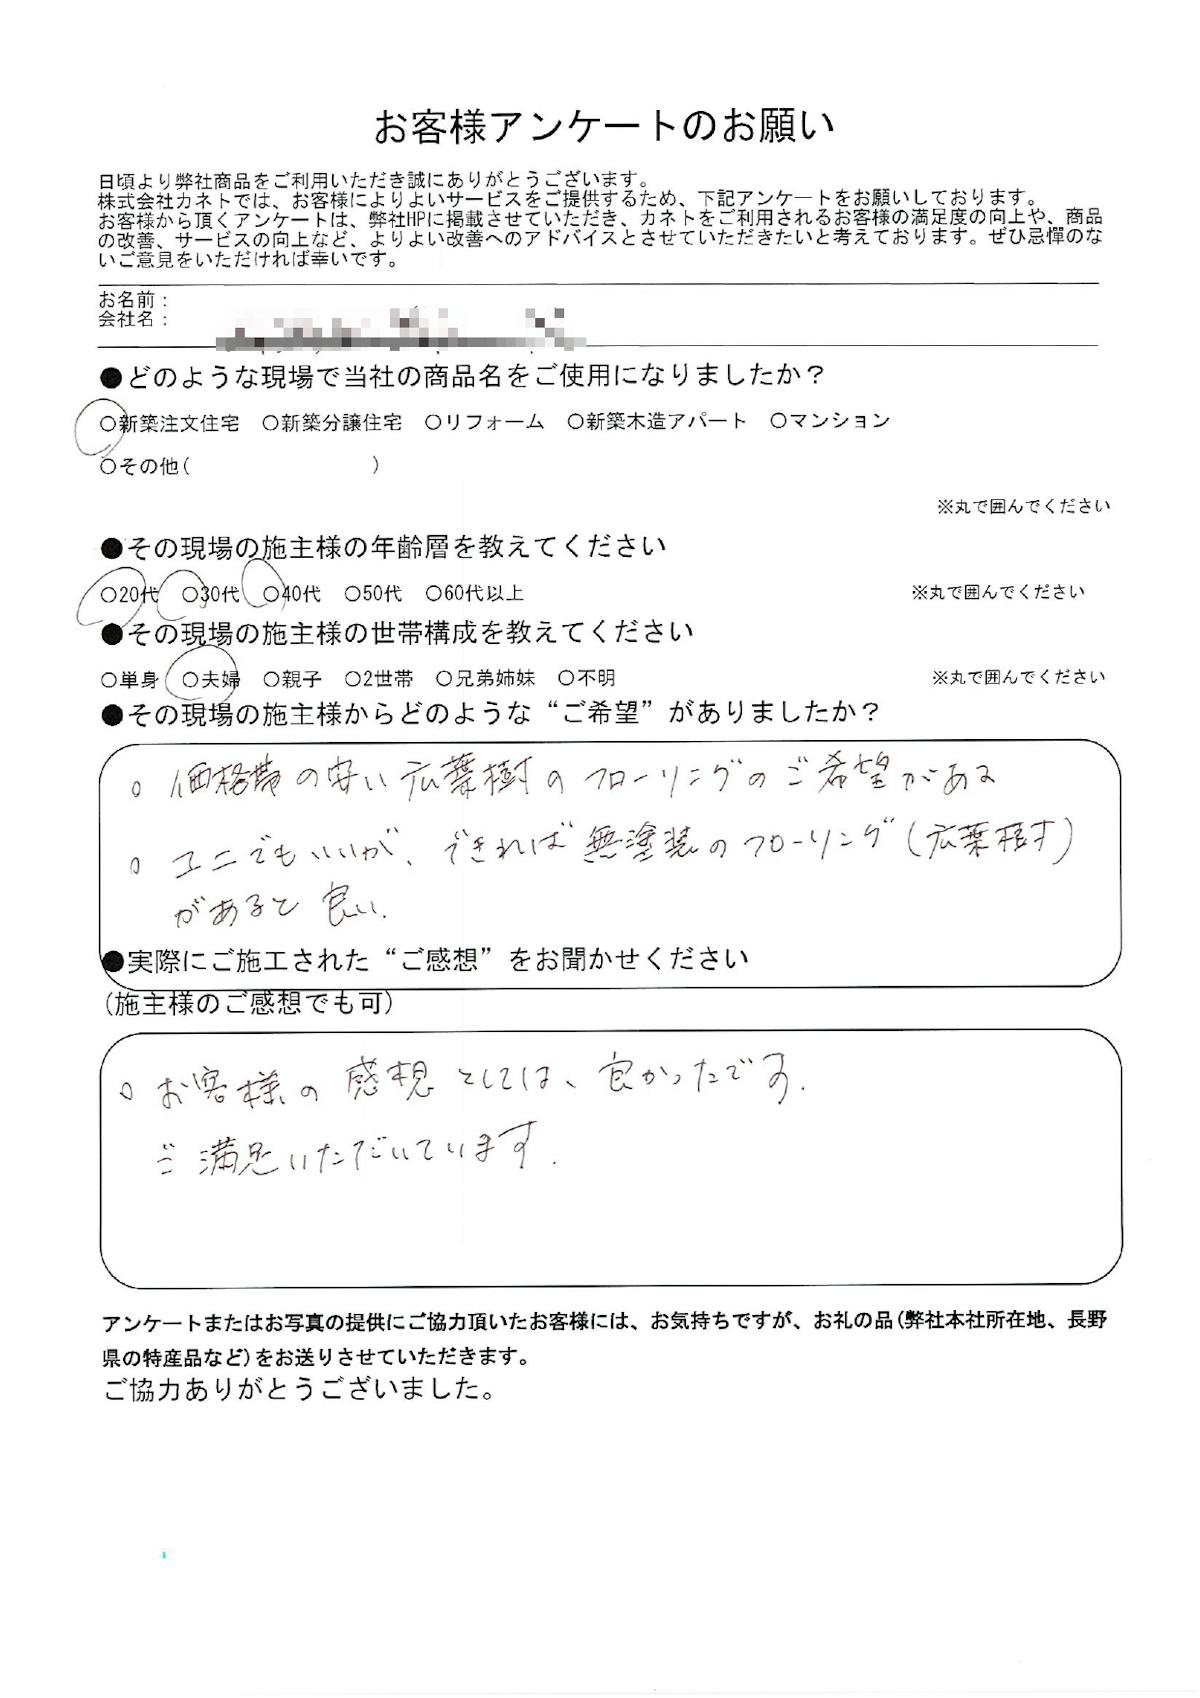 お客様アンケートのお願い
日頃より弊社商品をご利用いただき誠にありがとうございます。
株式会社カネトでは、お客様によりよいサービスをご提供するため、下記アンケートをお願いしております。
お客様から頂くアンケートは、弊社HPに掲載させていただき、カネトをご利用されるお客様の満足度の向上や、商品
の改善、サービスの向上など、よりよい改善へのアドバイスとさせていただきたいと考えております。ぜひ忌憚のな
いご意見をいただければ幸いです。
お名前：
会社名：
●どのような現場で当社の商品名をご使用になりましたか？
○新築注文住宅　○新築分譲住宅　○リフォーム　○新築木造アパート　○マンション
○その他(　　　　　　　　　)
※丸で囲んでください
●その現場の施主様の年齢層を教えてください
○20代　○30代　○40代　○50代　○60代以上　※丸で囲んでください
●その現場の施主様の世帯構成を教えてください
○単身　○夫婦　○親子　○2世帯　○兄弟姉妹　○不明　※丸で囲んでください
●その現場の施主様からどのような“ご希望”がありましたか？
○ 価格帯の安い広葉樹のフローリングのご希望がある
○ ユニでもいいが、できれば無塗装のフローリング(広葉樹)
があると良い.
●実際にご施工された“ご感想”をお聞かせください
(施主様のご感想でも可)
○ お客様の感想としては、良かったです.
ご満足いただいています.
アンケートまたはお写真の提供にご協力頂いたお客様には、お気持ちですが、お礼の品(弊社本社所在地、長野
県の特産品など)をお送りさせていただきます。
ご協力ありがとうございました。